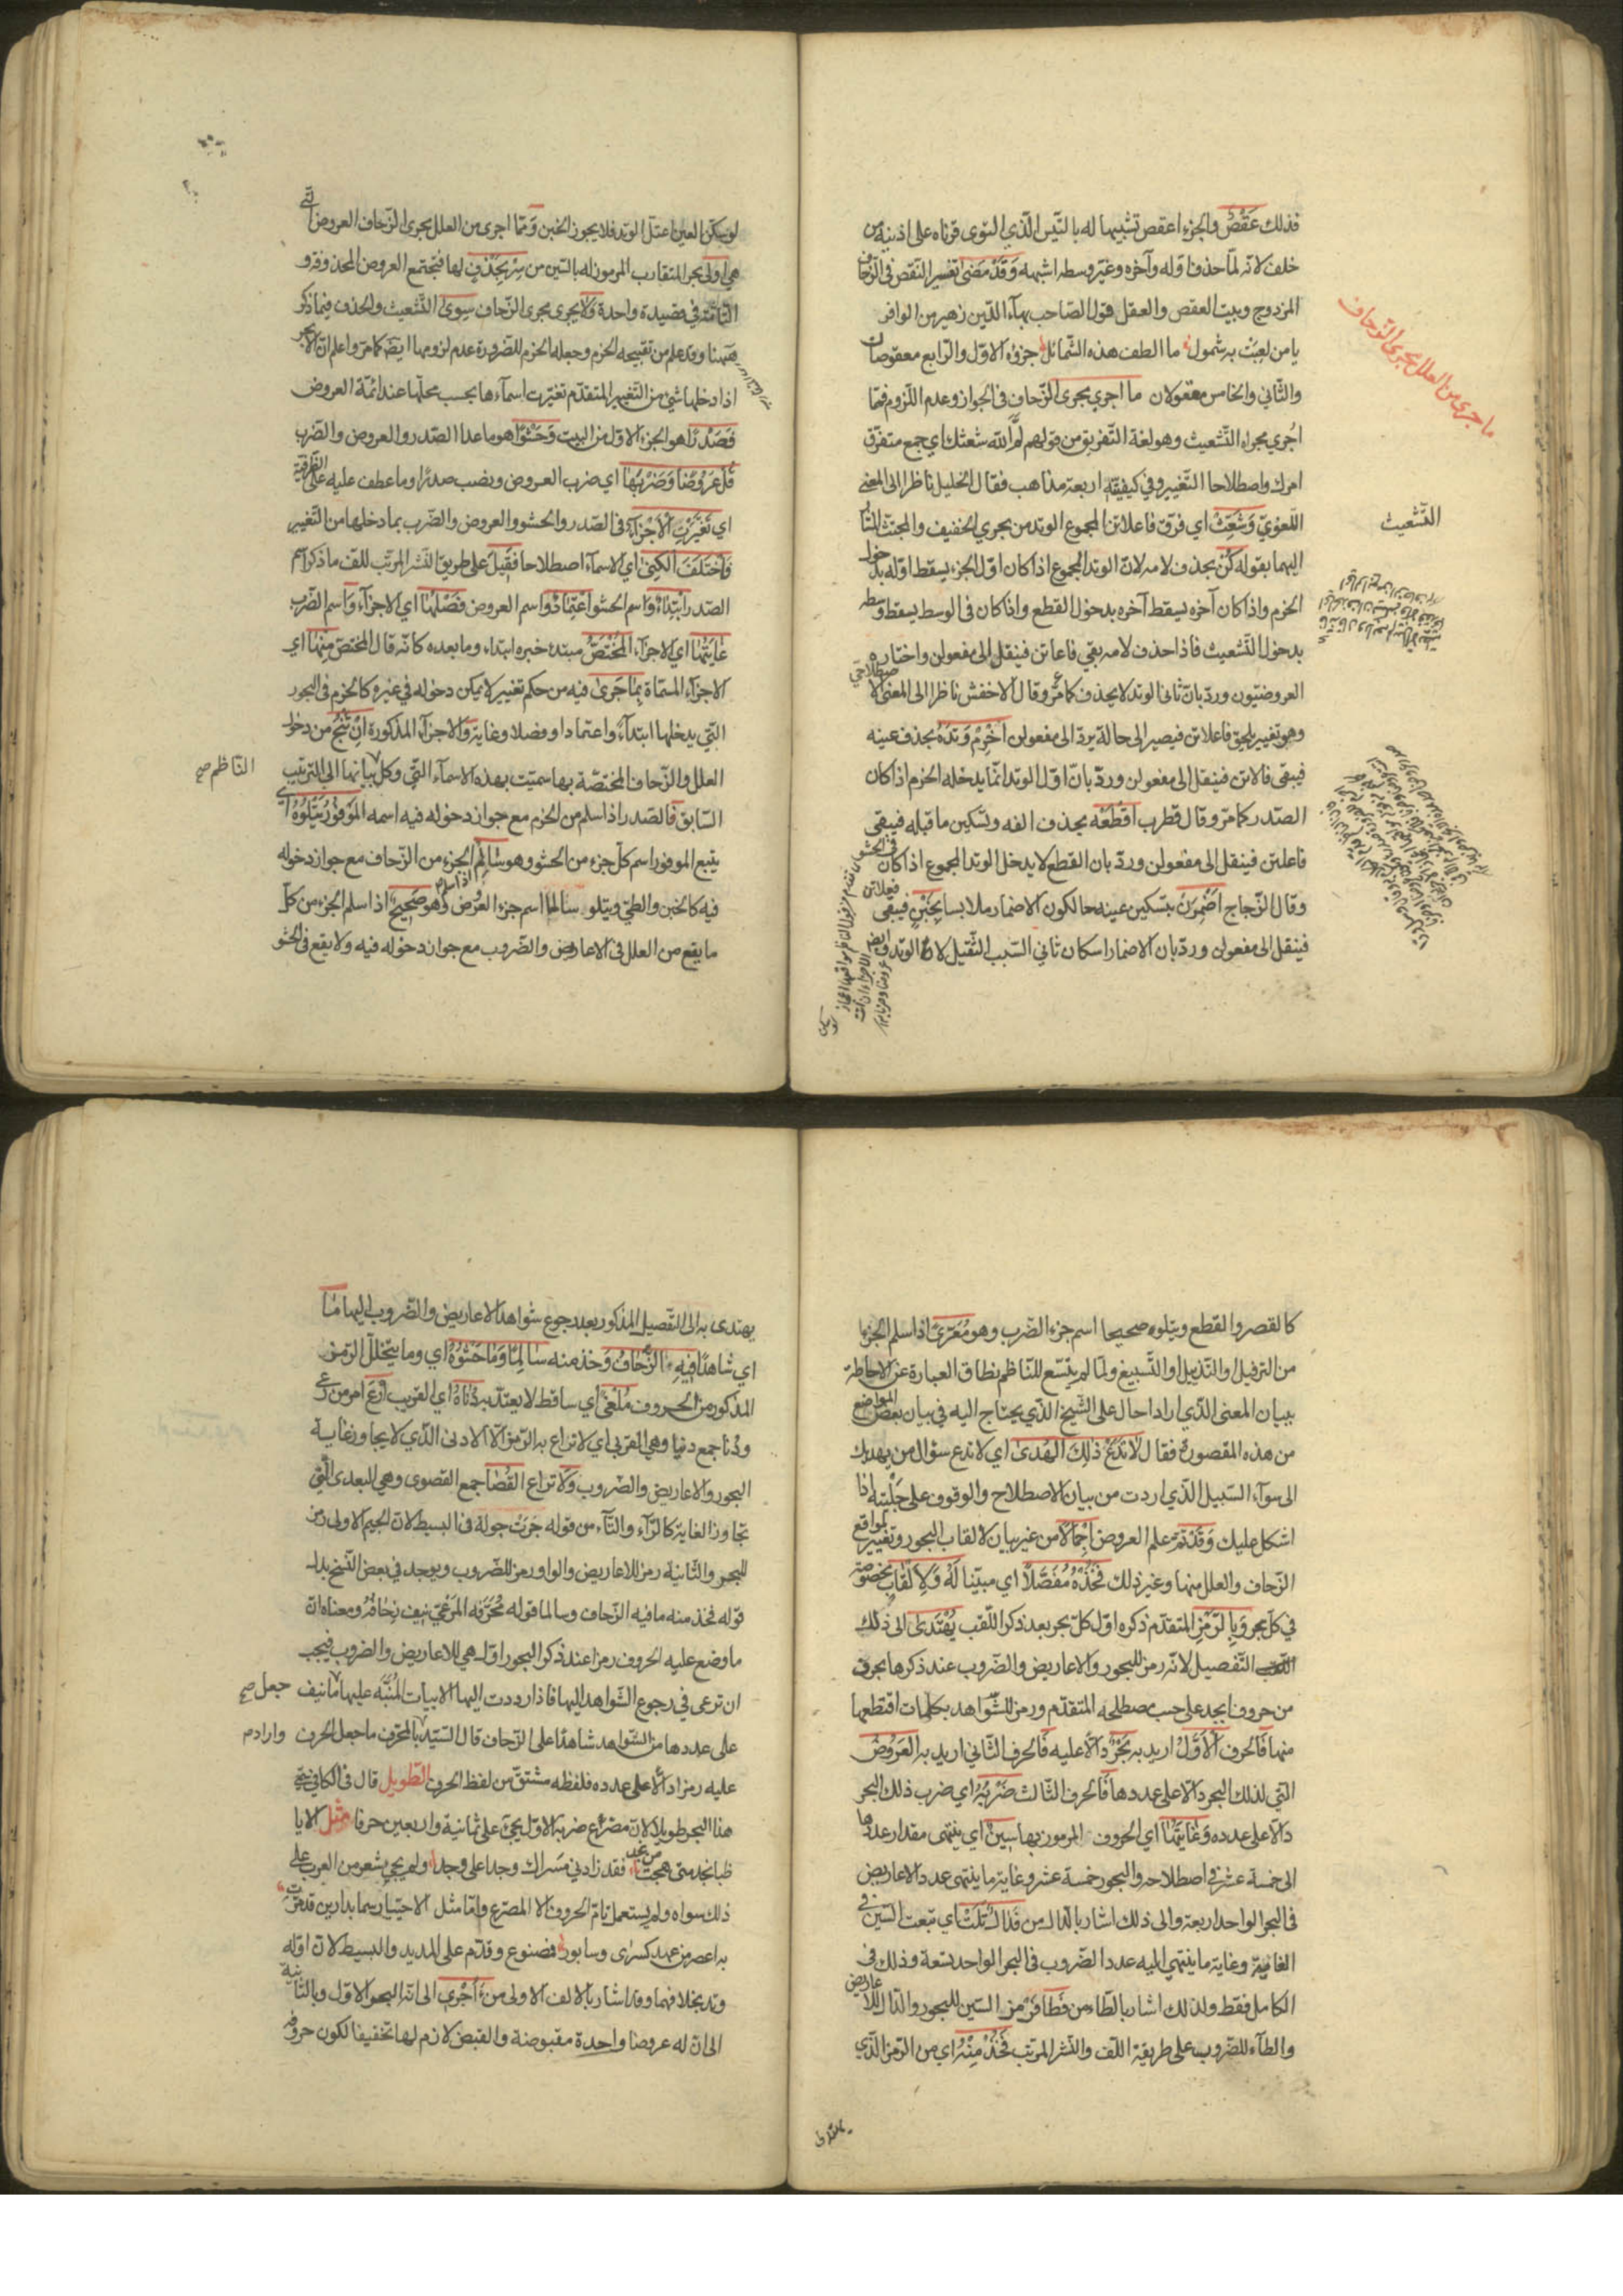 فذلك عَقْصٌ والجزء اعقص تشبيها له بالتّيس الّذي التوى قرناه على اذنيه من
خلف لانّه لمّا حذف اوّله وآخره وغيّر وسطه اشبهه وَقَدْ مَضَى تفسير النّقص في الزّحاف
المزدوج وبيت العقص والعقل قول الصّاحب بهآء الدّين زهير من الوافر
يا من لعبت به شمول ما الطف هذه الشّمائل جزؤه الاوّل والرّابع معقوصان
والثّاني والخامس معقولان ما اجري مجرى الزّحاف في الجواز وعدم اللّزوم فمّا
اُجري مجراه التّشعيث وهو لغة التّفريق من قولهم لمّ الله شعثك اي جمع متفرّق
امرك واصطلاحا التّغيير وفي كيفيّته اربعة مذاهب فقال الخليل ناظرا الى المعنى
اللّغويّ وَشَعِّثْ اي فرّق فاعلاتن المجموع الوتد من بحري الخفيف والمجتثّ المشار
اليهما بقوله كن بحذف لامه لانّ الوتد المجموع اذا كان اوّل الجزء يسقط اوّله بدخول
الخرم واذا كان آخره يسقط آخره بدخول القطع واذا كان في الوسط يسقط وسطه
بدخول التّشعيث فاذا حذف لامه بقي فاعاتن فينقل الى مفعولن واختاره
العروضيّون وردّ بانّ ثاني الوتد لا يحذف كما مرّ وقال الاخفش ناظرا الى المعنى الاصطلاحي
وهو تغيير يلحق فاعلاتن فيصير الى حالة يردّ الى مفعولن اَخْرِمْ وَتَدَهُ بحذف عينه
فيبقى فالاتن فينقل الى مفعولن وردّ بانّ اوّل الوتد انّما يدخله الخرم اذا كان
الصّدر كما مرّ وقال قطرب اقْطَعْهُ بحذف الفه وتسكين ما قبله فيبقى
فاعلتن فينقل الى مفعولن وردّ بان القطع لا يدخل الوتد المجموع اذا كان في الحشو
وقال الزّجاج اَضْمِرَنْ بتسكين عينه حالكون الاضمار ملابسا بِخَبْنٍ فيبقى فعلاتن
فينقل الى مفعولن وردّ بان الاضمار اسكان ثاني السّبب الثّقيل لا الوتد وايضا
ما جرى من العلل مجرى الزّحاف
التّشعيث
لو سكّن العين اعتلّ الوتد فلا يجوز الخبن وَمِمّا اجرى من العلل مجرى الزّحاف العروض الّتي
هي اولى بحر المتقارب المرموز له بالسّين من سِرْ بِحَذْفٍ لها فيجتمع العروض المحذوفة و
التّامّة في قصيدة واحدة وَلا يجرى مجرى الزّحاف سِوَى التّشعيث والحذف فيما ذكر
هنا وقد علم من تقبيحه الخرم وجعله الخزم للضّرورة عدم لزومها ايضًا كما مرّ واعلم انّ الاجزاء
اذا دخلها شئ من التّغيير المتقدّم تغيّرت اسمآءها بحسب محلّها عند ائمّة العروض
فَصَدْرًا هو الجزء الاوّل من البيت وَحَشْوًا هو ما عدا الصّدر والعروض والضّرب
قُلْ عَرُوضًا وَضَرْبَهَا اي ضرب العروض ونصب صدرًا وما عطف عليه على الظّرفيّة
اي تَغَيَّرَتِ الْاَجْزَآءُ في الصّدر والحشو والعروض والضّرب بما دخلها من التّغيير
وَاخْتَلَفَ الْكُنَى اي الاسمآء اصطلاحا فَقِيلَ على طريق النّشر المرتّب للّف ما ذكر اسم
الصّدر ابْتِدَاءٌ وَاسم الحشو اعْتِمَادٌ وَاسم العروض فَصْلُهَا اي الاجزآء وَاسم الضّرب
غَايَتُهَا اي الاجزآء الْمُخْتَصُّ مبتدء خبره ابتداء وما بعده كانّه قال المختصّ مِنْهَا اي
الاجزآء المسمّاة بِمَا جَرَى فيه من حكم تغيير لا يمكن دخوله في غيره كالخرم في البحور
الّتي يدخلها ابتدآء واعتمادا وفصلا وغاية وَالاجزآء المذكورة اِنْ تَنْجُ من دخول
العلل والزّحاف المختصّة بها سمّيت بهذه الاسمآء الّتي وكل بيانها الى التّرتيب
النّاظم صح
السّابق فَالصّدر اذا سلم من الخرم مع جواز دخوله فيه اسمه الْمَوْفُورُ يَتْلُوهُ اي
يتبع الموفور اسم كلّ جزء من الحشو وهو سَالِمُ الجزء من الزّحاف مع جواز دخوله
فيه كالخبن والطيّ ويتلو سالما اسم جزء العروض وهو صَحِيحٌ اذا سلم الجزء من كلّ
ما يقع من العلل في الاعاريض والضّروب مع جواز دخوله فيه ولا يقع في الحشو
كالقصر والقطع ويتلوه صحيحا اسم جزء الضّرب وهو مُعَرًّى اذا سلم الجزء
من الترفيل والتّذييل او التّسبيغ ولمّا لم يتّسع للنّاظم نطاق العبارة عن الاحاطة
ببيان المعنى الّذي اراد احال على الشّيخ الّذي يحتاج اليه في بيان بعض المواضع
من هذه المقصورة فقال لَا تَدَعْ ذَلِكَ الْهُدَى اي لا تدع سؤال من يهديك
الى سوآء السّبيل الّذي اردت من بيان الاصطلاح والوقوف على جليّته اذا
اشكل عليك وَقَدْ تَمَّ علم العروض اِجْمَالًا من غير بيان لالقاب البحور وتغيير لمواقع
الزّحاف والعلل منها وغير ذلك فَخُذْهُ مُفَصَّلًا اي مبيّنا لَهُ وَلِاَلْقَابٍ مخصوصة
في كلّ بحر وَبِالرَّمْزِ المتقدّم ذكره اوّل كلّ بحر بعد ذكر اللّقب يُهْتَدَى الى ذلك
التّفصيل لانّه رمز للبحور والاعاريض والضّروب عند ذكرها بحرف
من حروف ابجد على حسب مصطلحه المتقدّم ورمز للشّواهد بكلمات اقتطعها
منها فَالحرف الْاَوَّلُ اريد به بَحْرٌ دالّا عليه فَالحرف الثّاني اريد به الْعَرُوضُ
الّتي لذلك البحر دالّا على عددها فَالحرف الثّالث ضَرْبُهُ اي ضرب ذلك البحر
دالّا على عدده وَغَايَتُهَا اي الحروف المرموز بها سِينٌ اي ينتهى مقدار عددها
الى خمسة عشر في اصطلاحه والبحور خمسة عشر وغاية ما ينتهى عدد الاعاريض
في البحر الواحد اربعة والى ذلك اشار بالدّال من فَدَالٌ تَلَتْ اي تبعت السّين في
الغاية وغاية ما ينتهي اليه عدد الضّروب في البحر الواحد تسعة وذلك في
الكامل فقط ولذلك اشار بالطّاء من فَطَا فرمز السّين للبحور والدّال للاعاريض
والطآء للضّروب على طريقة اللّف والنّشر المرتّب فَخُذْ مِنْهُ اي من الرّمز الّذي
يهتدى به الى التّفصيل المذكور بعد رجوع شواهد الاعاريض والضّروب اليها مَا
اي شاهدًا فِيهِ الزِّحَافُ وَخذ منه سَالِمًا وَمَا حَشْوُهُ اي وما يتخلّل الرّمز
المذكور من الحروف مُلْغًى اي ساقط لا يعتدّ به دُنَاهُ اي القريب ارْعَ امر من رعى
ودُنا جمع دنيا وهي القربى اي لا تراع به الرّمز الّا الادنى الّذي لا يجاوز غاية
البحور والاعاريض والضّروب وَلَا تراع الْقُصَا جمع القصوى وهي البعدى الّتي
تجاوز الغاية كالرّآء والتّآء من قوله جَرَتْ جولة في البسيط لانّ الجيم الاولى رمز
للبحر والثّانية رمز للاعاريض والواو رمز للضّروب ويوجد في بعض النّسخ بدل
قوله فخذ منه ما فيه الزّحاف وسالما قوله مُحَرَّفُه الْمَرْعِيّ نيف زحافه ومعناه انّ
ما وضع عليه الحروف رمزا عند ذكر البحور اوّلا هي للاعاريض والضروب فيجب
ان ترعى في رجوع الشّواهد اليها فاذا رددت اليها الابيات المُنَبَّه عليها ما نيف
جعل صح
على عددها من الشّواهد شاهدًا على الزّحاف قال السّيّد بالمحرّف ما جعل الحرف
واراد م
عليه رمزا دالّا على عدده فلفظه مشتقّ من لفظ الحرف الطّويل قال في الكافي سمّي
هذا البحر طويلا لانّ مصرّع ضربه الاوّل يجئ على ثمانية واربعين حرفا مثل الا يا
صبا نجد متى هجت من نجد فقد زادني مسراك وجدا على وجد ولم يجئ شعر من العرب على
ذلك سواه ولم يستعمل تامّ الحروف الا المصرّع وامّا مثل
به اعصر من عهد كسرى وسابور فمصنوع وقدّم على المديد والبسيط لانّ اوّله
وتد بخلافهما وقد اشار بالالف الاولى من أَأَجْرِي الى انّه البحر الاوّل وبالثّانية
الى انّ له عروضا واحدة مقبوضة والقبض لازم لها تخفيفا لكون حروفه